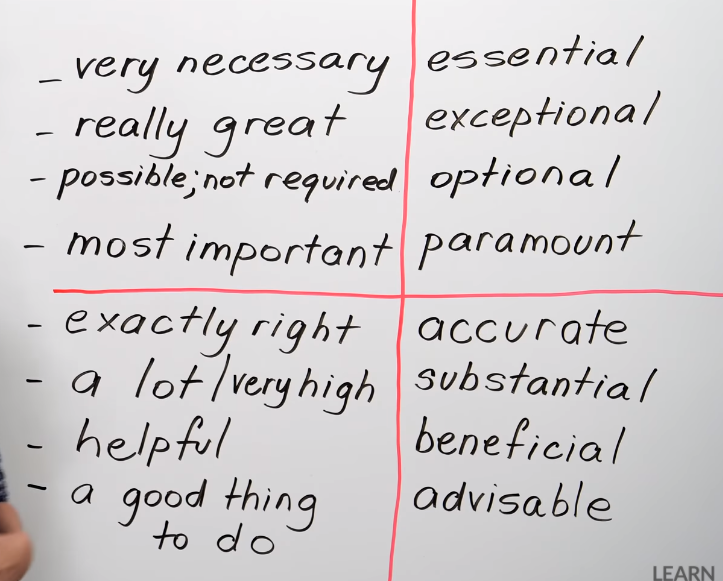 - very necessary essential
- really great exceptional
- possible; not required optional
- most important paramount
- exactly right accurate
- a lot/very high substantial
- helpful beneficial
- a good thing advisable
to do
LEARN